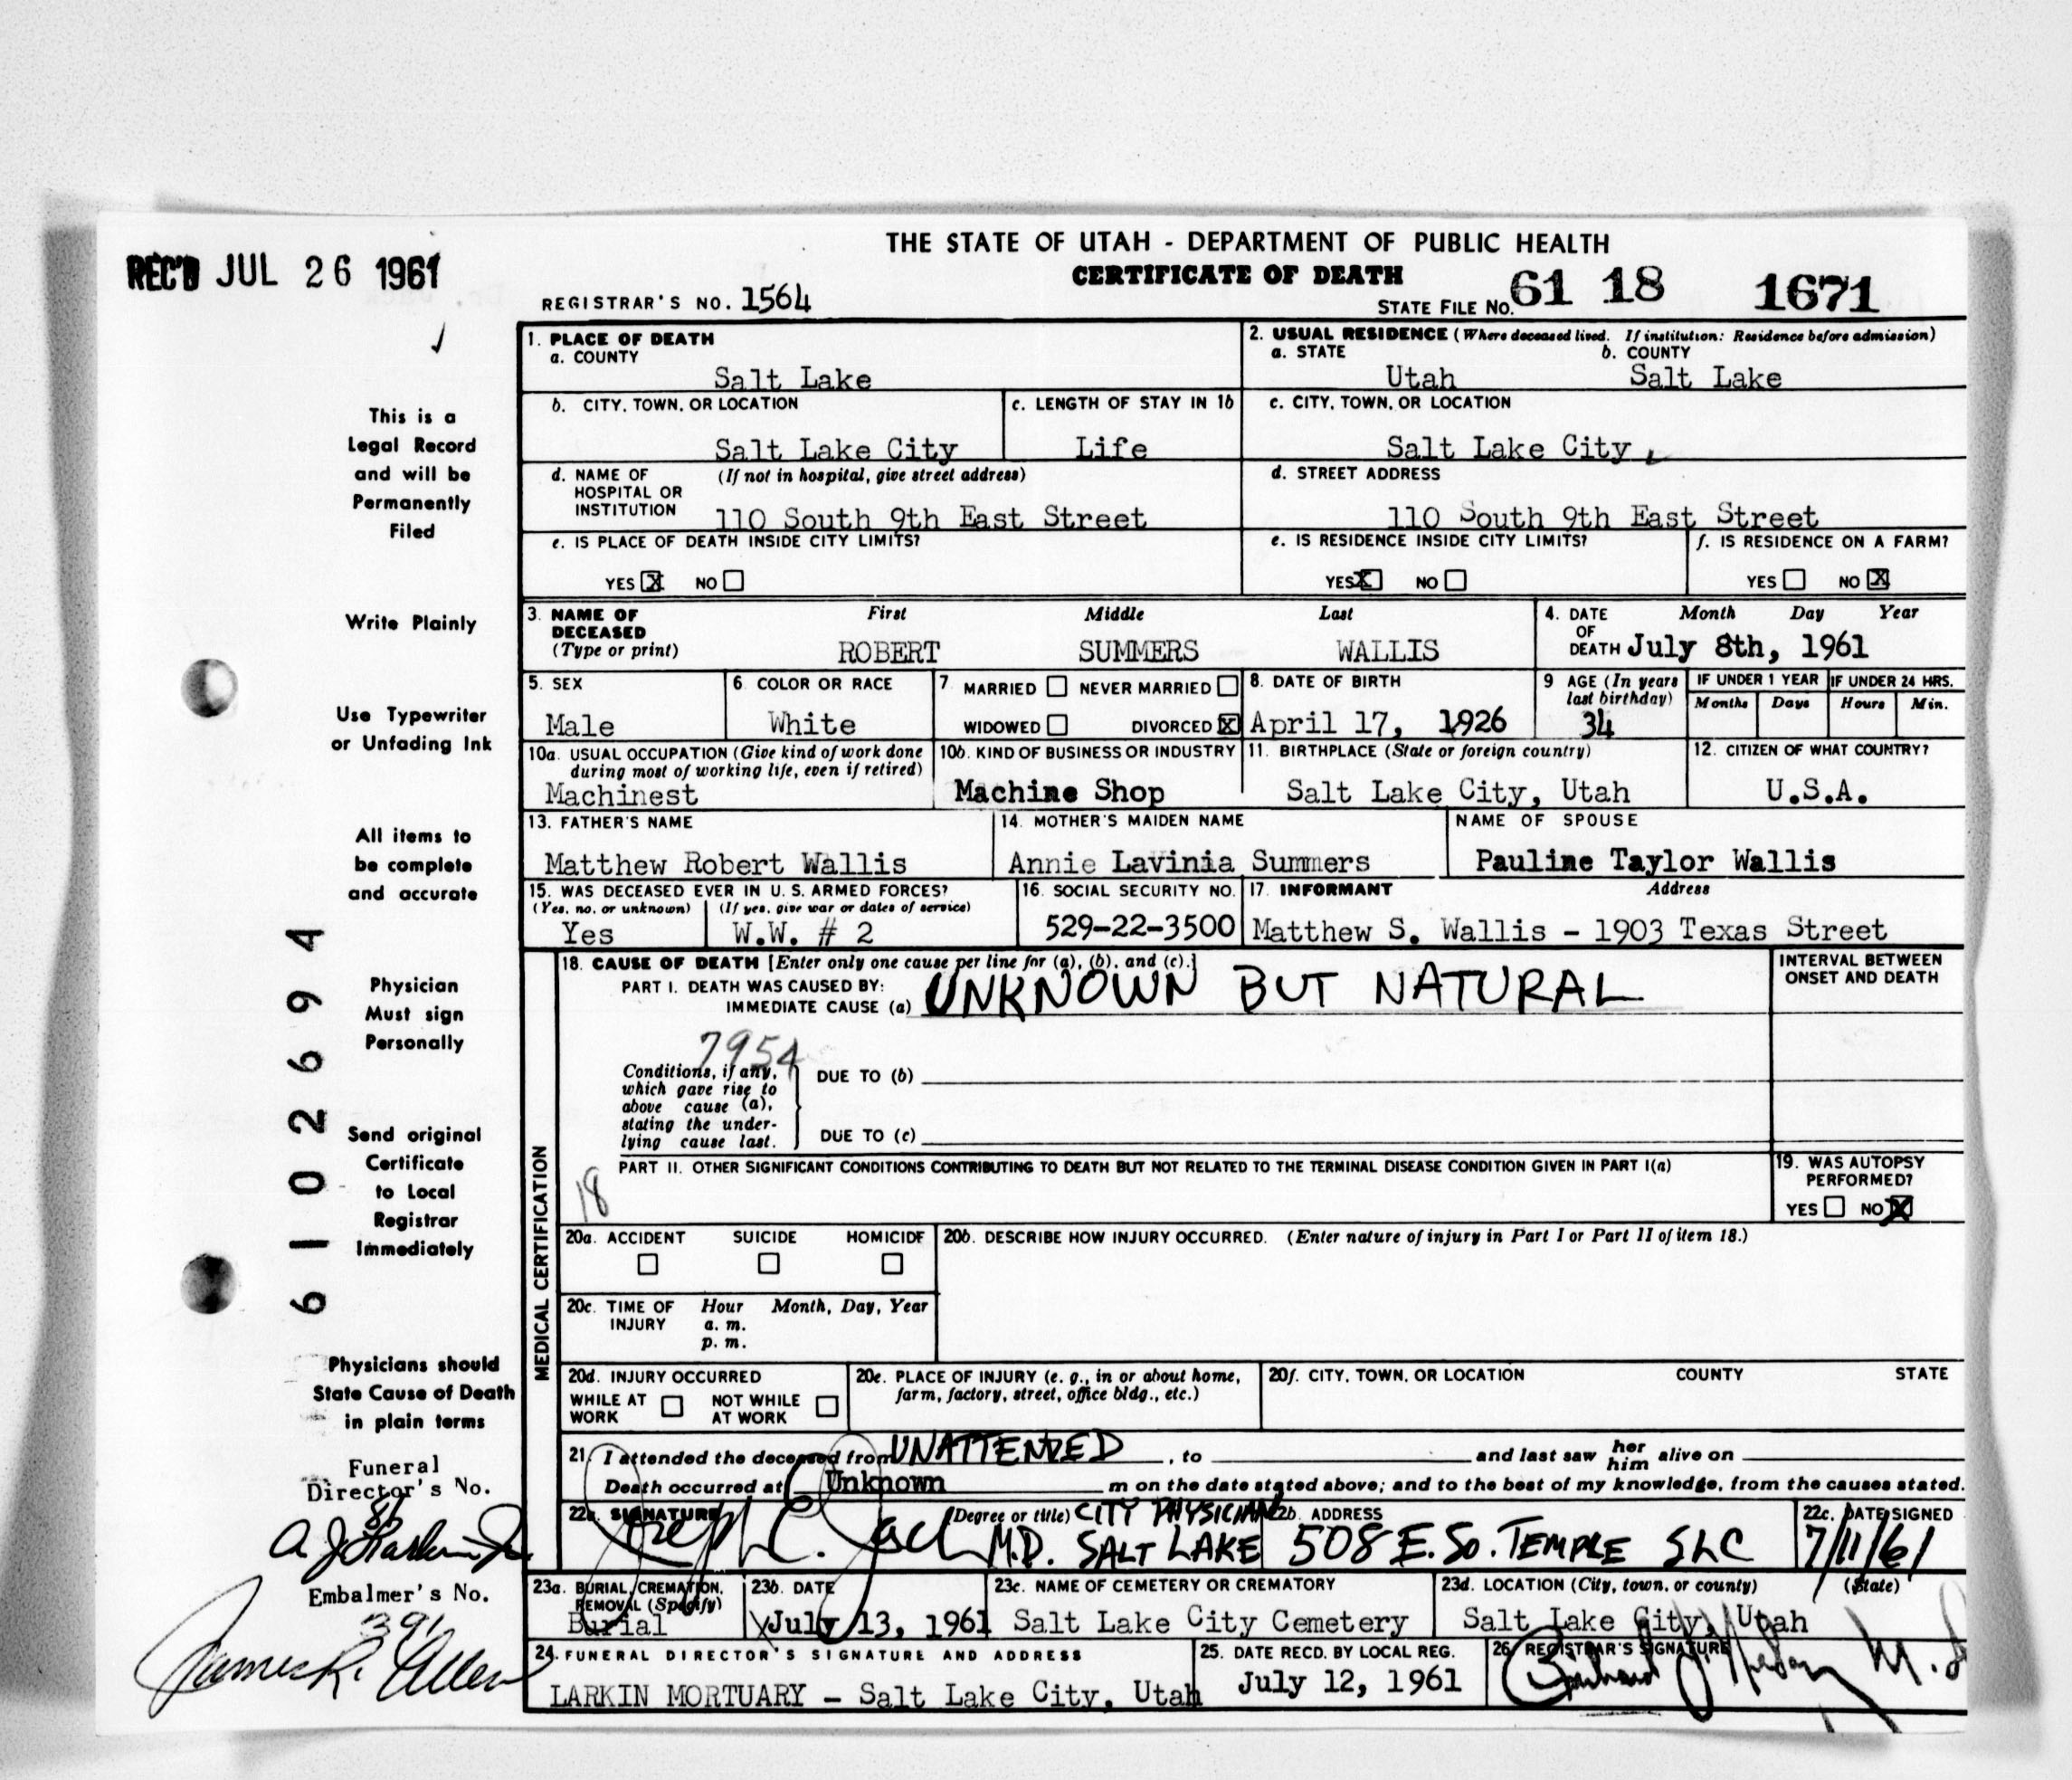 THE STATE OF UTAH - DEPARTMENT OF PUBLIC HEALTH
REC'D JUL 26 1961
CERTIFICATE OF DEATH
REGISTRAR'S NO. 1564
STATE FILE NO. 61 18 1671
1. PLACE OF DEATH
a. COUNTY
Salt Lake
2. USUAL RESIDENCE (Where deceased lived. If institution: Residence before admission)
a. STATE b. COUNTY
Utah Salt Lake
b. CITY, TOWN, OR LOCATION
Salt Lake City
c. LENGTH OF STAY IN 1b
Life
c. CITY, TOWN, OR LOCATION
Salt Lake City
d. NAME OF HOSPITAL OR INSTITUTION (If not in hospital, give street address)
110 South 9th East Street
d. STREET ADDRESS
110 South 9th East Street
e. IS PLACE OF DEATH INSIDE CITY LIMITS?
YES X NO
e. IS RESIDENCE INSIDE CITY LIMITS?
YES X NO
f. IS RESIDENCE ON A FARM?
YES NO X
3. NAME OF DECEASED (Type or print)
First Middle Last
ROBERT SUMMERS WALLIS
4. DATE OF DEATH Month Day Year
July 8th, 1961
5. SEX
Male
6. COLOR OR RACE
White
7. MARRIED NEVER MARRIED
WIDOWED DIVORCED X
8. DATE OF BIRTH
April 17, 1926
9 AGE (In years last birthday)
34
IF UNDER 1 YEAR
Months Days
IF UNDER 24 HRS.
Hours Min.
10a. USUAL OCCUPATION (Give kind of work done during most of working life, even if retired)
Machinest
10b. KIND OF BUSINESS OR INDUSTRY
Machine Shop
11. BIRTHPLACE (State or foreign country)
Salt Lake City, Utah
12. CITIZEN OF WHAT COUNTRY?
U.S.A.
13. FATHER'S NAME
Matthew Robert Wallis
14. MOTHER'S MAIDEN NAME
Annie Lavinia Summers
NAME OF SPOUSE
Pauline Taylor Wallis
15. WAS DECEASED EVER IN U. S. ARMED FORCES?
(Yes, no, or unknown) (If yes, give war or dates of service)
Yes W.W. # 2
16. SOCIAL SECURITY NO.
529-22-3500
17. INFORMANT Address
Matthew S. Wallis - 1903 Texas Street
MEDICAL CERTIFICATION
18. CAUSE OF DEATH [Enter only one cause per line for (a), (b), and (c).]
PART I. DEATH WAS CAUSED BY:
IMMEDIATE CAUSE (a) UNKNOWN BUT NATURAL
INTERVAL BETWEEN ONSET AND DEATH
7954
Conditions, if any, which gave rise to above cause (a), stating the underlying cause last.
DUE TO (b)
DUE TO (c)
PART II. OTHER SIGNIFICANT CONDITIONS CONTRIBUTING TO DEATH BUT NOT RELATED TO THE TERMINAL DISEASE CONDITION GIVEN IN PART I(a)
18
19. WAS AUTOPSY PERFORMED?
YES NO X
20a. ACCIDENT SUICIDE HOMICIDE
20b. DESCRIBE HOW INJURY OCCURRED. (Enter nature of injury in Part I or Part II of item 18.)
20c. TIME OF INJURY Hour Month, Day, Year
a. m.
p. m.
20d. INJURY OCCURRED
WHILE AT WORK NOT WHILE AT WORK
20e. PLACE OF INJURY (e. g., in or about home, farm, factory, street, office bldg., etc.)
20f. CITY, TOWN, OR LOCATION COUNTY STATE
21. I attended the deceased from UNATTENDED , to and last saw her him alive on
Death occurred at Unknown m on the date stated above; and to the best of my knowledge, from the causes stated.
22a. SIGNATURE (Degree or title) CITY PHYSICIAN
M.D. SALT LAKE
22b. ADDRESS
508 E. So. TEMPLE SLC
22c. DATE SIGNED
7/11/61
23a. BURIAL, CREMATION, REMOVAL (Specify)
Burial
23b. DATE
July 13, 1961
23c. NAME OF CEMETERY OR CREMATORY
Salt Lake City Cemetery
23d. LOCATION (City, town, or county) (State)
Salt Lake City, Utah
24. FUNERAL DIRECTOR'S SIGNATURE AND ADDRESS
LARKIN MORTUARY - Salt Lake City, Utah
25. DATE RECD. BY LOCAL REG.
July 12, 1961
26. REGISTRAR'S SIGNATURE
This is a
Legal Record
and will be
Permanently
Filed
Write Plainly
Use Typewriter
or Unfading Ink
All items to
be complete
and accurate
Physician
Must sign
Personally
Send original
Certificate
to Local
Registrar
Immediately
Physicians should
State Cause of Death
in plain terms
61 02694
Funeral
Director's No.
81
Embalmer's No.
391
James R. Allen